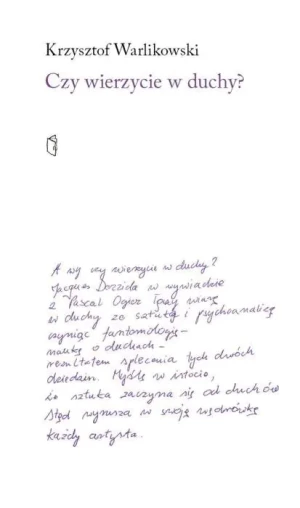 Krzysztof Warlikowski
Czy wierzycie w duchy?
A wy czy wierzycie w duchy?
Jacques Derrida w wywiadzie
z Pascal Ogier łączy wiarę
w duchy ze sztuką i psychoanalizą
czyniąc fantomologię –
naukę o duchach –
rezultatem splecenia tych dwóch
dziedzin. Myślę w istocie,
że sztuka zaczyna się od duchów
Stąd wyrusza w swoją wędrówkę
każdy artysta.